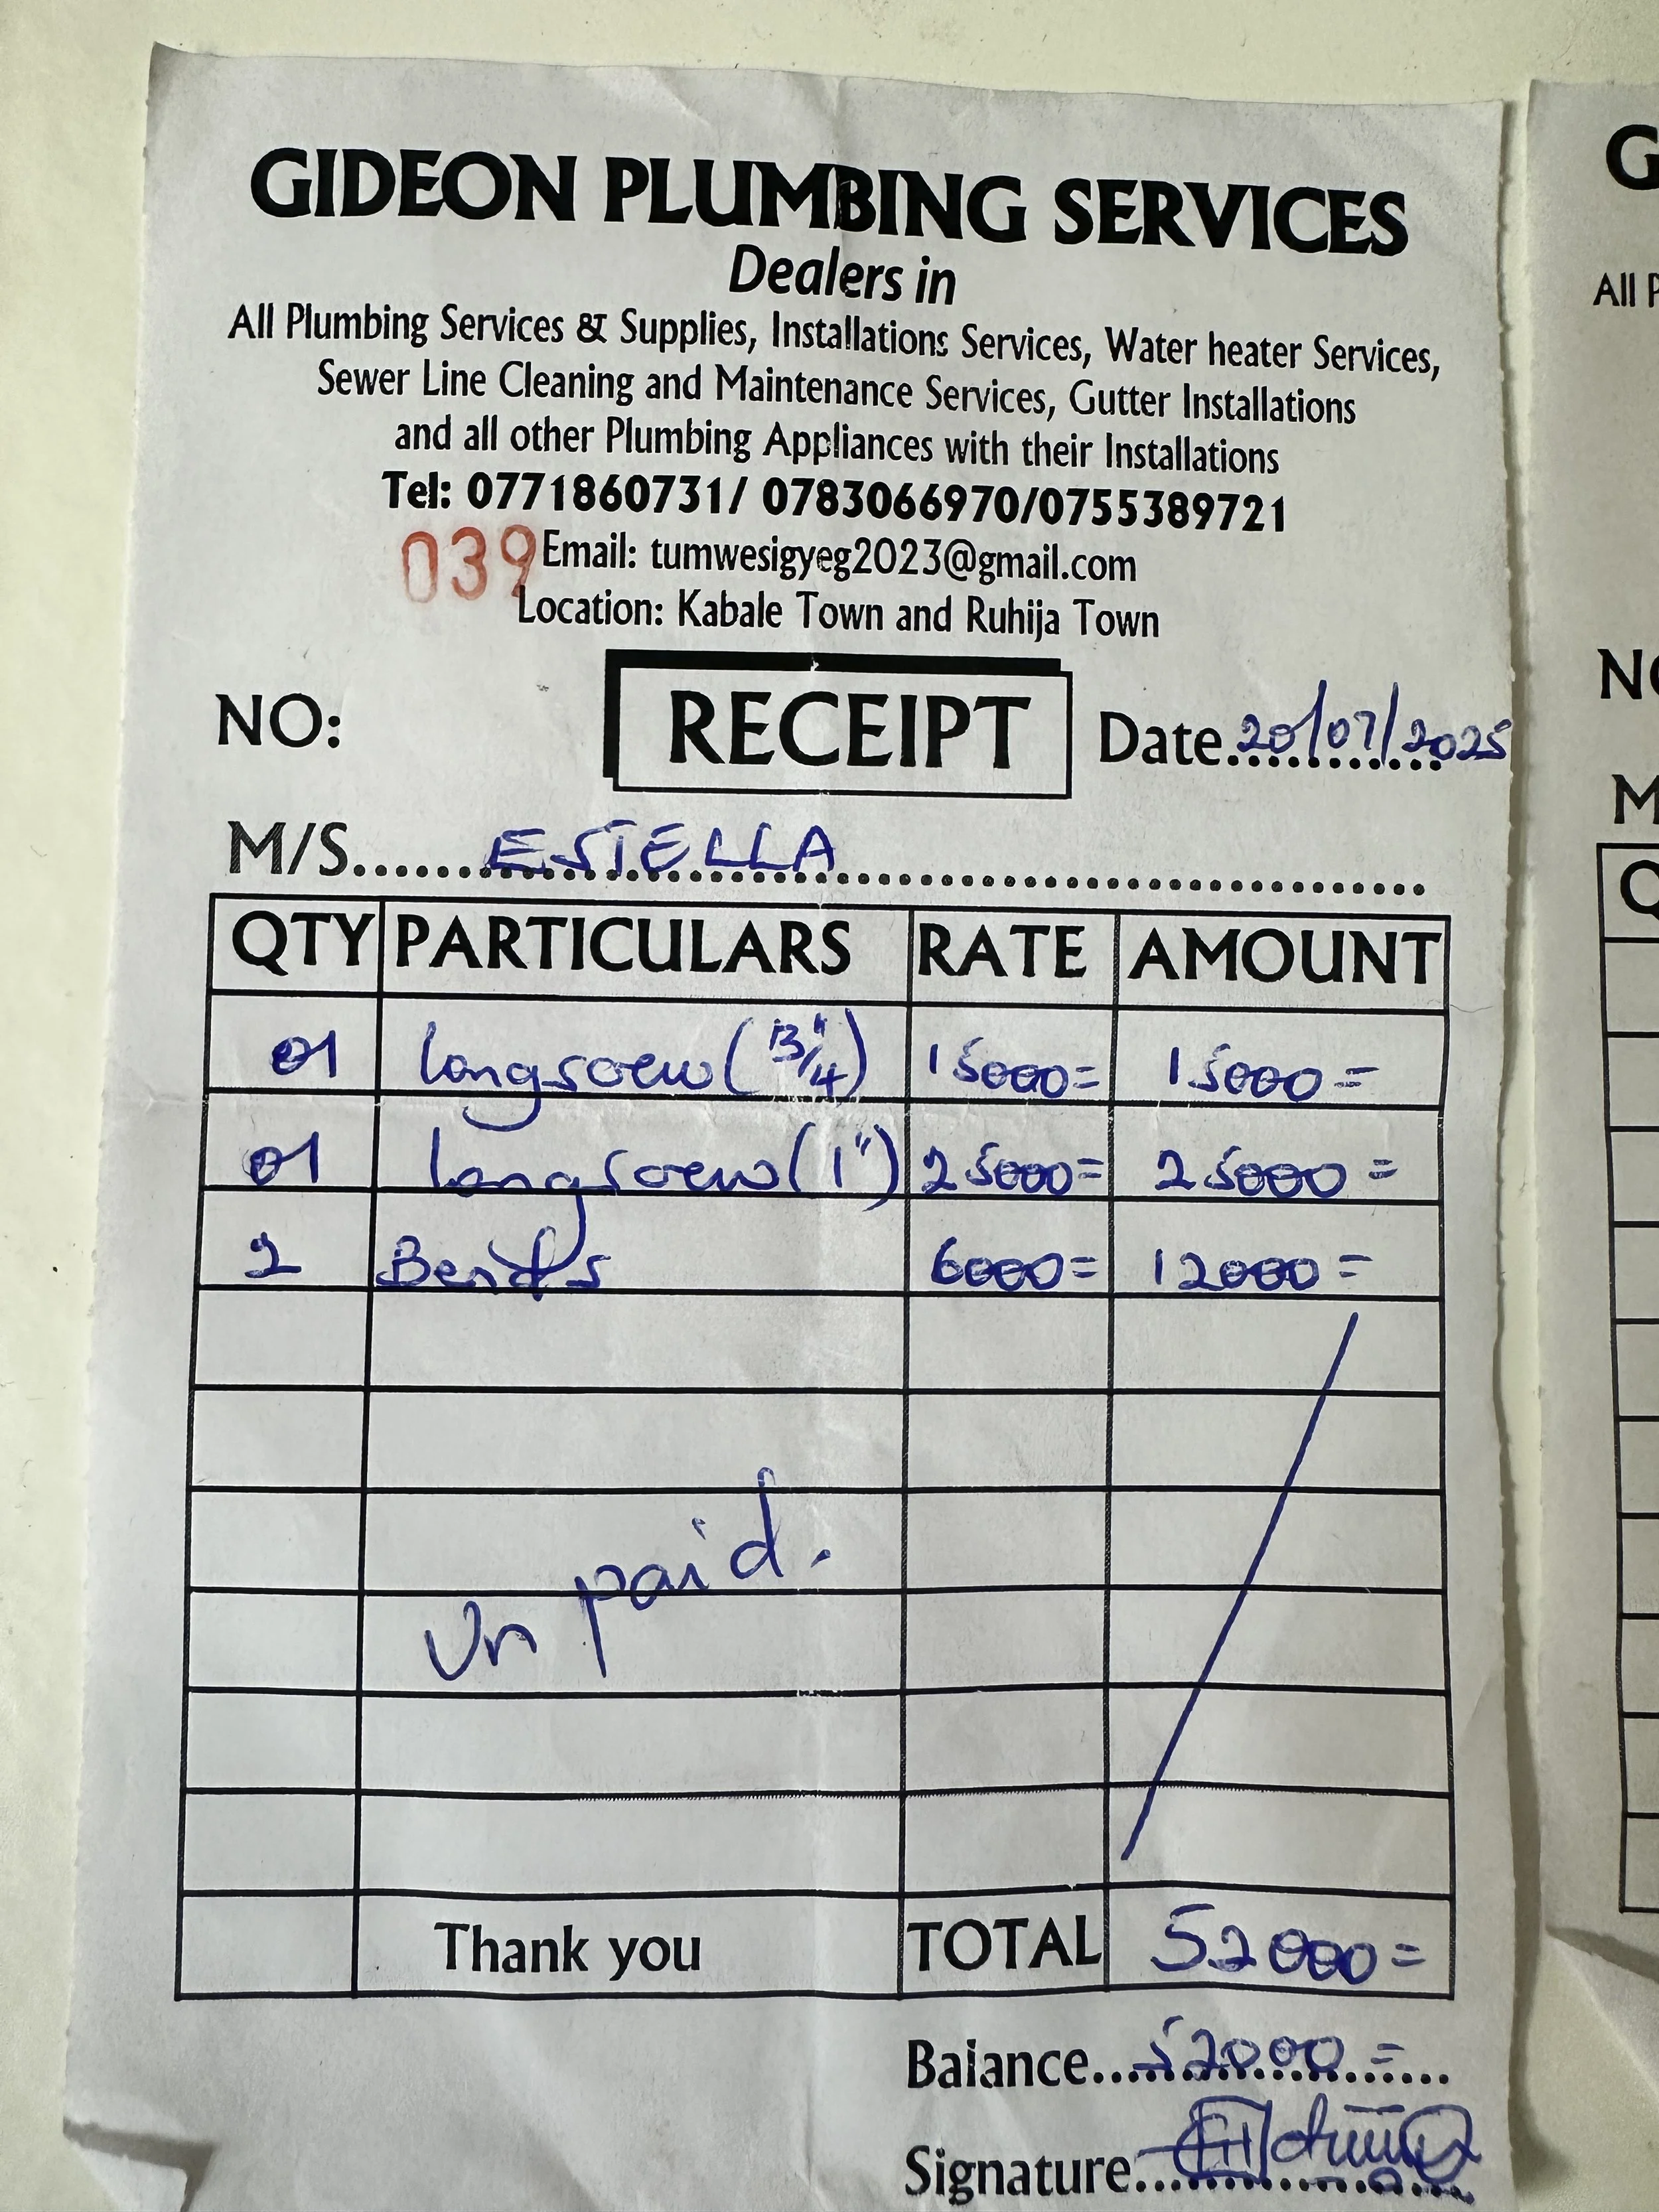 GIDEON PLUMBING SERVICES
Dealers in
All Plumbing Services & Supplies, Installations Services, Water heater Services,
Sewer Line Cleaning and Maintenance Services, Gutter Installations
and all other Plumbing Appliances with their Installations
Tel: 0771860731/ 0783066970/0755389721
039 Email: tumwesigyeg2023@gmail.com
Location: Kabale Town and Ruhija Town
NO: RECEIPT Date 20/07/2025
M/S ESTELLA
QTY PARTICULARS RATE AMOUNT
01 longscrew ( 15000= 15000=
01 longscrew (1") 25000= 25000=
2 Bends 6000= 12000=
Un paid.
Thank you TOTAL 52000=
Balance 52000=
Signature
G
All
NO
M
Q